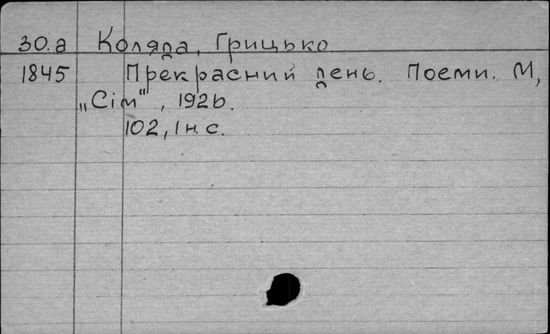 30.а Коляда, Грицько
1845 Прекрасний день. Поеми. М,
„Сім", 1926.
102, 1 н. с.